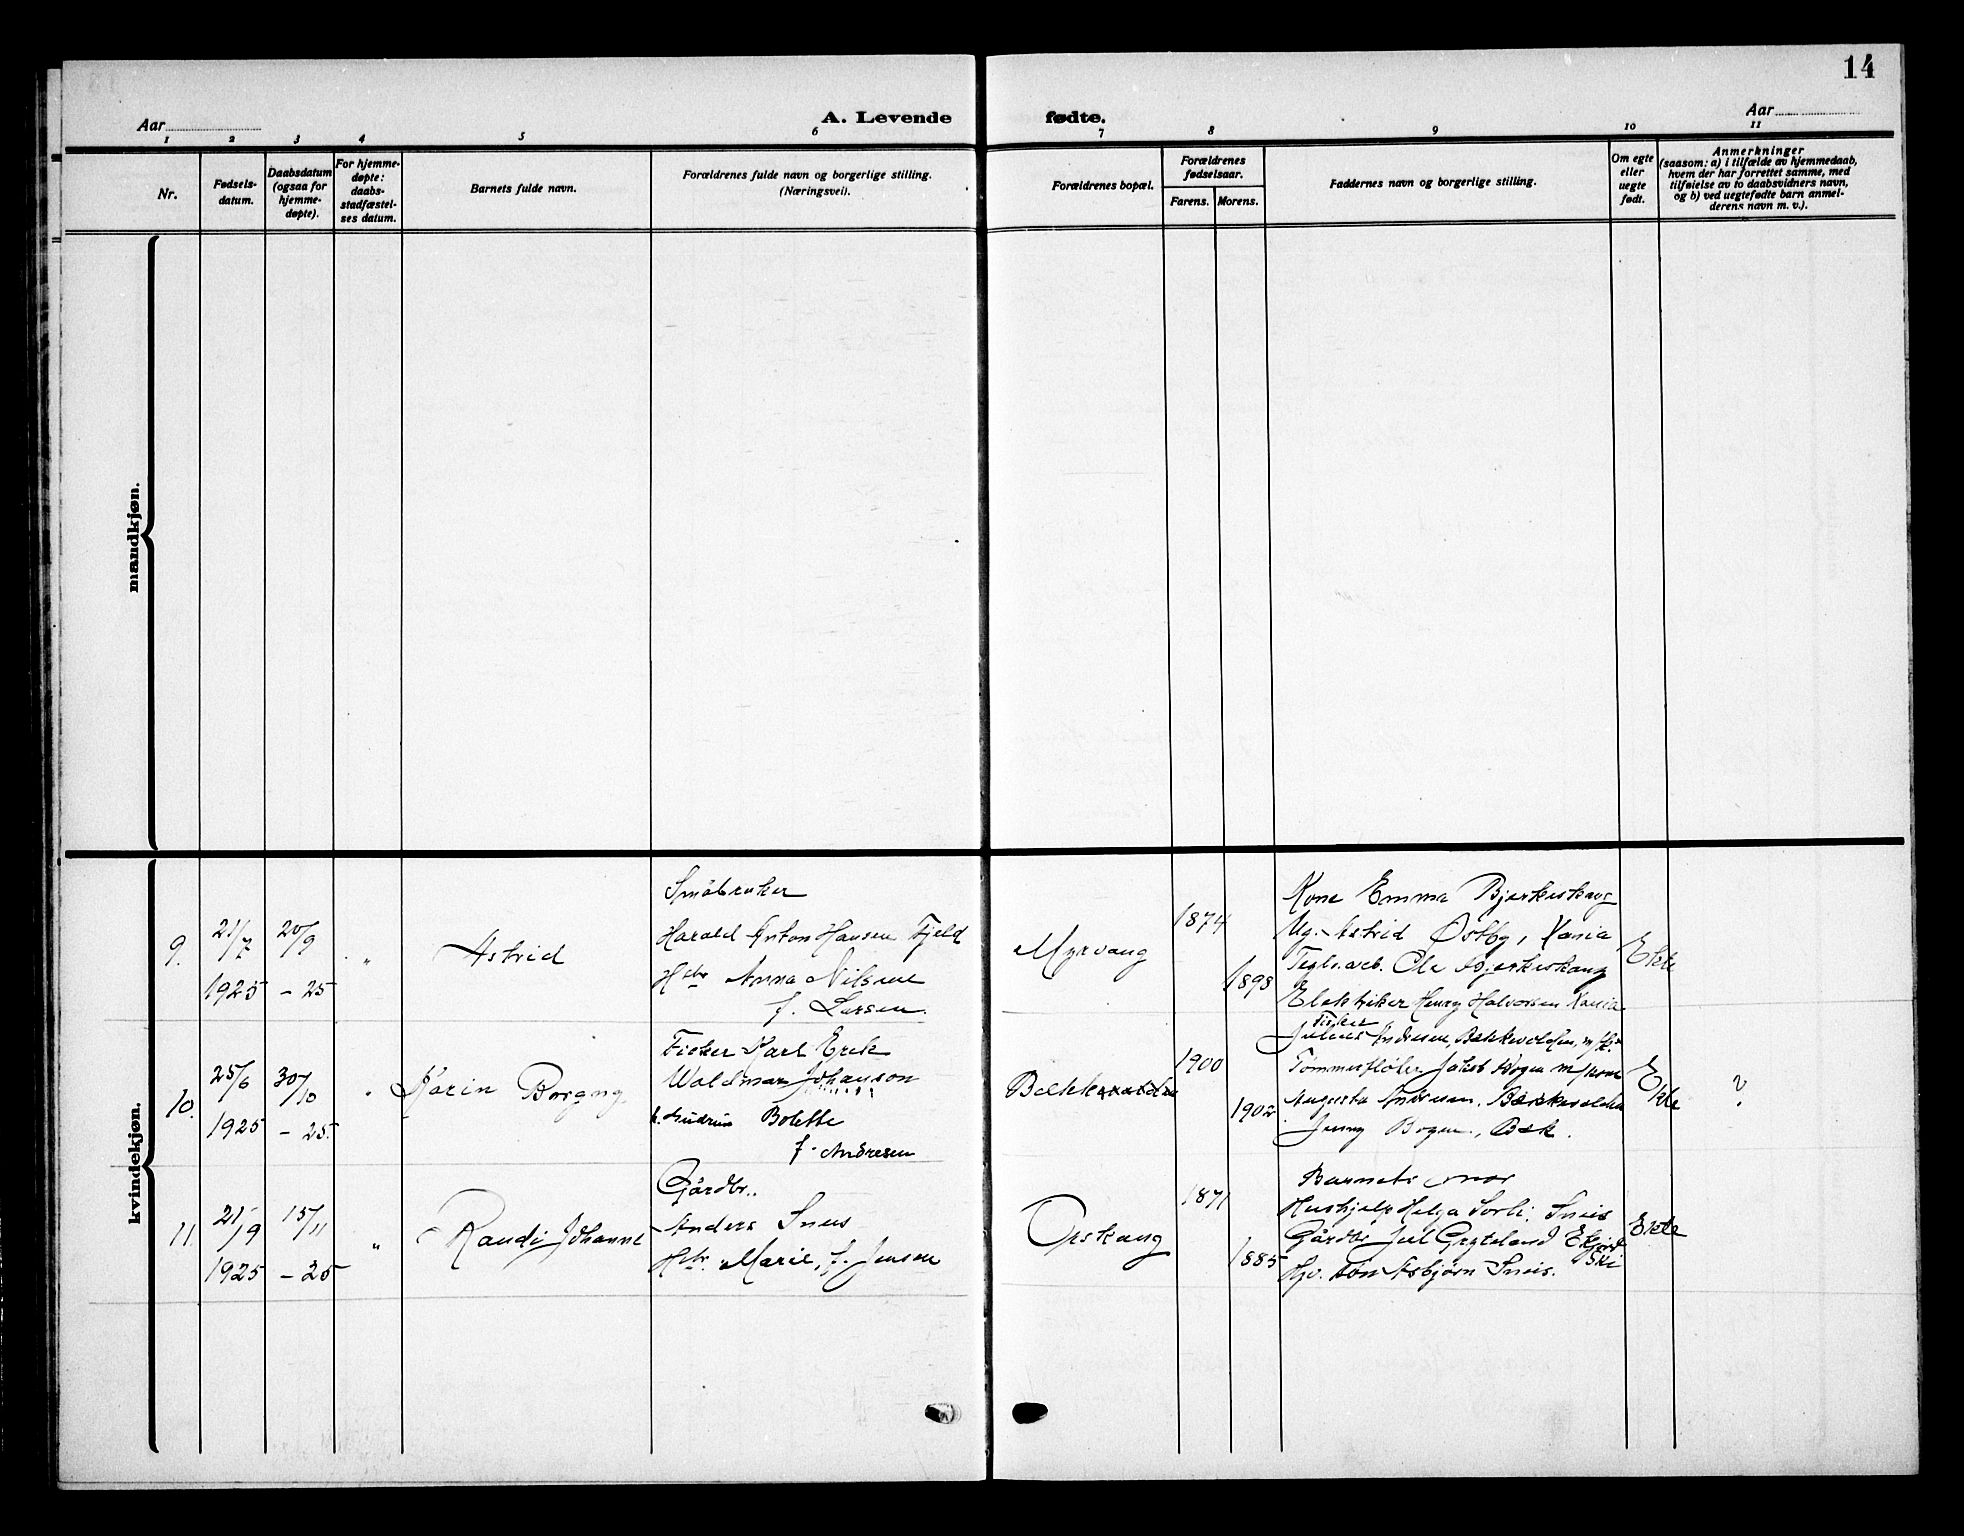 14
Aar
A. Levende fødte.
Aar
1 2 3 4 5 6 7 8 9 10 11
Nr.
Fødsels-
datum.
Daabsdatum
(ogsaa for
hjemme-
døpte).
For hjemme-
døpte:
daabs-
stadfæstel-
ses datum.
Barnets fulde navn.
Forældrenes fulde navn og borgerlige stilling.
(Næringsvei).
Forældrenes bopæl.
Forældrenes
fødselsaar.
Farens. Morens.
Faddernes navn og borgerlige stilling.
Om egte
eller
uegte
født.
Anmerkninger
(saasom: a) i tilfælde av hjemmedaab,
hvem der har forrettet samme, med
tilføielse av to daabsvidners navn,
og b) ved uegtefødte barn anmel-
derens navn m. v.).
mandkjøn.
kvindekjøn.
9.
21/7
1925
20/9
- 25
"
Astrid
Småbruker
Harald Anton Hansen Fjeld
Hstr Anna Nilsine
f. Larsen.
Myrvang
1874
1898
Kone Emma Bjerkeskaug
Ug. Astrid Østby,
Tegls.arb. Ole Bjerkeskaug
Elektriker Henry Halvorsen
Ekte
10.
25/6
1925
30/10
- 25.
"
Karin Borgny
Fisker Karl Erik
Waldmar Johanson
h. Gudrun Bolette
f. Andresen
Bækkevolden
1900
1902
Fisker
Julius Andresen, Bækkevolden,
Tømmerfløter Jakob Bogen m/kone
Augusta Andresen, Bækkevolden
Jenny Bogen, Bæk.
Ekte
?
11.
21/9
1925
15/11
- 25
"
Randi Johanne
Gårdbr.
Anders Sneis
Hstr Marie, f. Jensen
Opskaug
1871
1885
Barnets mor
Hushjelp Helga Sorli, Sneis
Gårdbr Juel Gryteland
Ski
Gj. søn Asbjørn Sneis.
Ekte